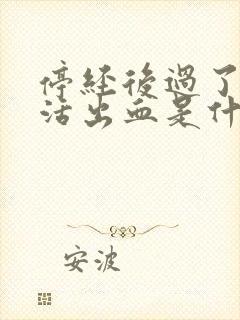 停經後過了
活出血是什
安波